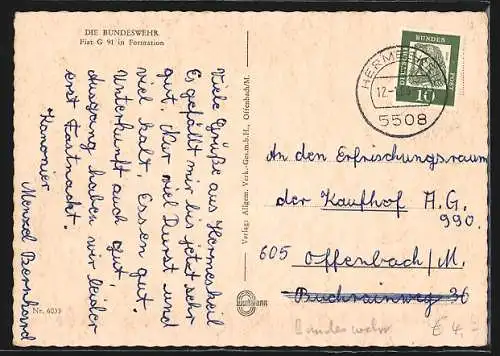 DIE BUNDESWEHR
Fiat G 91 in Formation
Viele Grüße aus Hermeskeil
Es gefällt mir bis jetzt sehr
gut. Hier viel Durst und
viel kalt. Essen gut
Unterkunft auch gut,
Ausgang haben wir leider
erst Fastnacht.
Kanonier
Menzel Bernhard
Nr. 6033
Verlag: Allgem. Verk.-Ges.m.b.H., Offenbach/M.
DEUTSCHE BUNDESPOST
10
HERMESKEIL
12-1
5508
An den Erfrischungsraum
der Kaufhof A.G.
990.
605 Offenbach/M.
Buchrainweg 36
Bundeswehr
€ 4,-